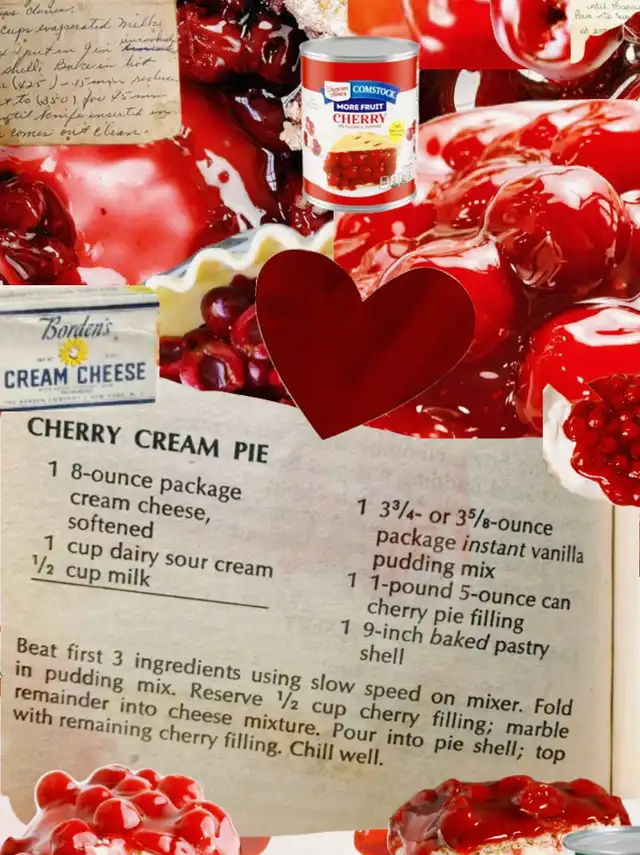 cups evaporated milk
put in 9 in unbaked
shell. Bake in hot
(425) - 15 min reduce
to (350) for 45 min
until knife inserted in
comes out clean.
until
Pour into
COMSTOCK
MORE FRUIT
CHERRY
Borden's
CREAM CHEESE
CHERRY CREAM PIE
1 8-ounce package
cream cheese,
softened
1 cup dairy sour cream
1/2 cup milk
1 3 3/4- or 3 5/8-ounce
package instant vanilla
pudding mix
1 1-pound 5-ounce can
cherry pie filling
1 9-inch baked pastry
shell
Beat first 3 ingredients using slow speed on mixer. Fold
in pudding mix. Reserve 1/2 cup cherry filling; marble
remainder into cheese mixture. Pour into pie shell; top
with remaining cherry filling. Chill well.